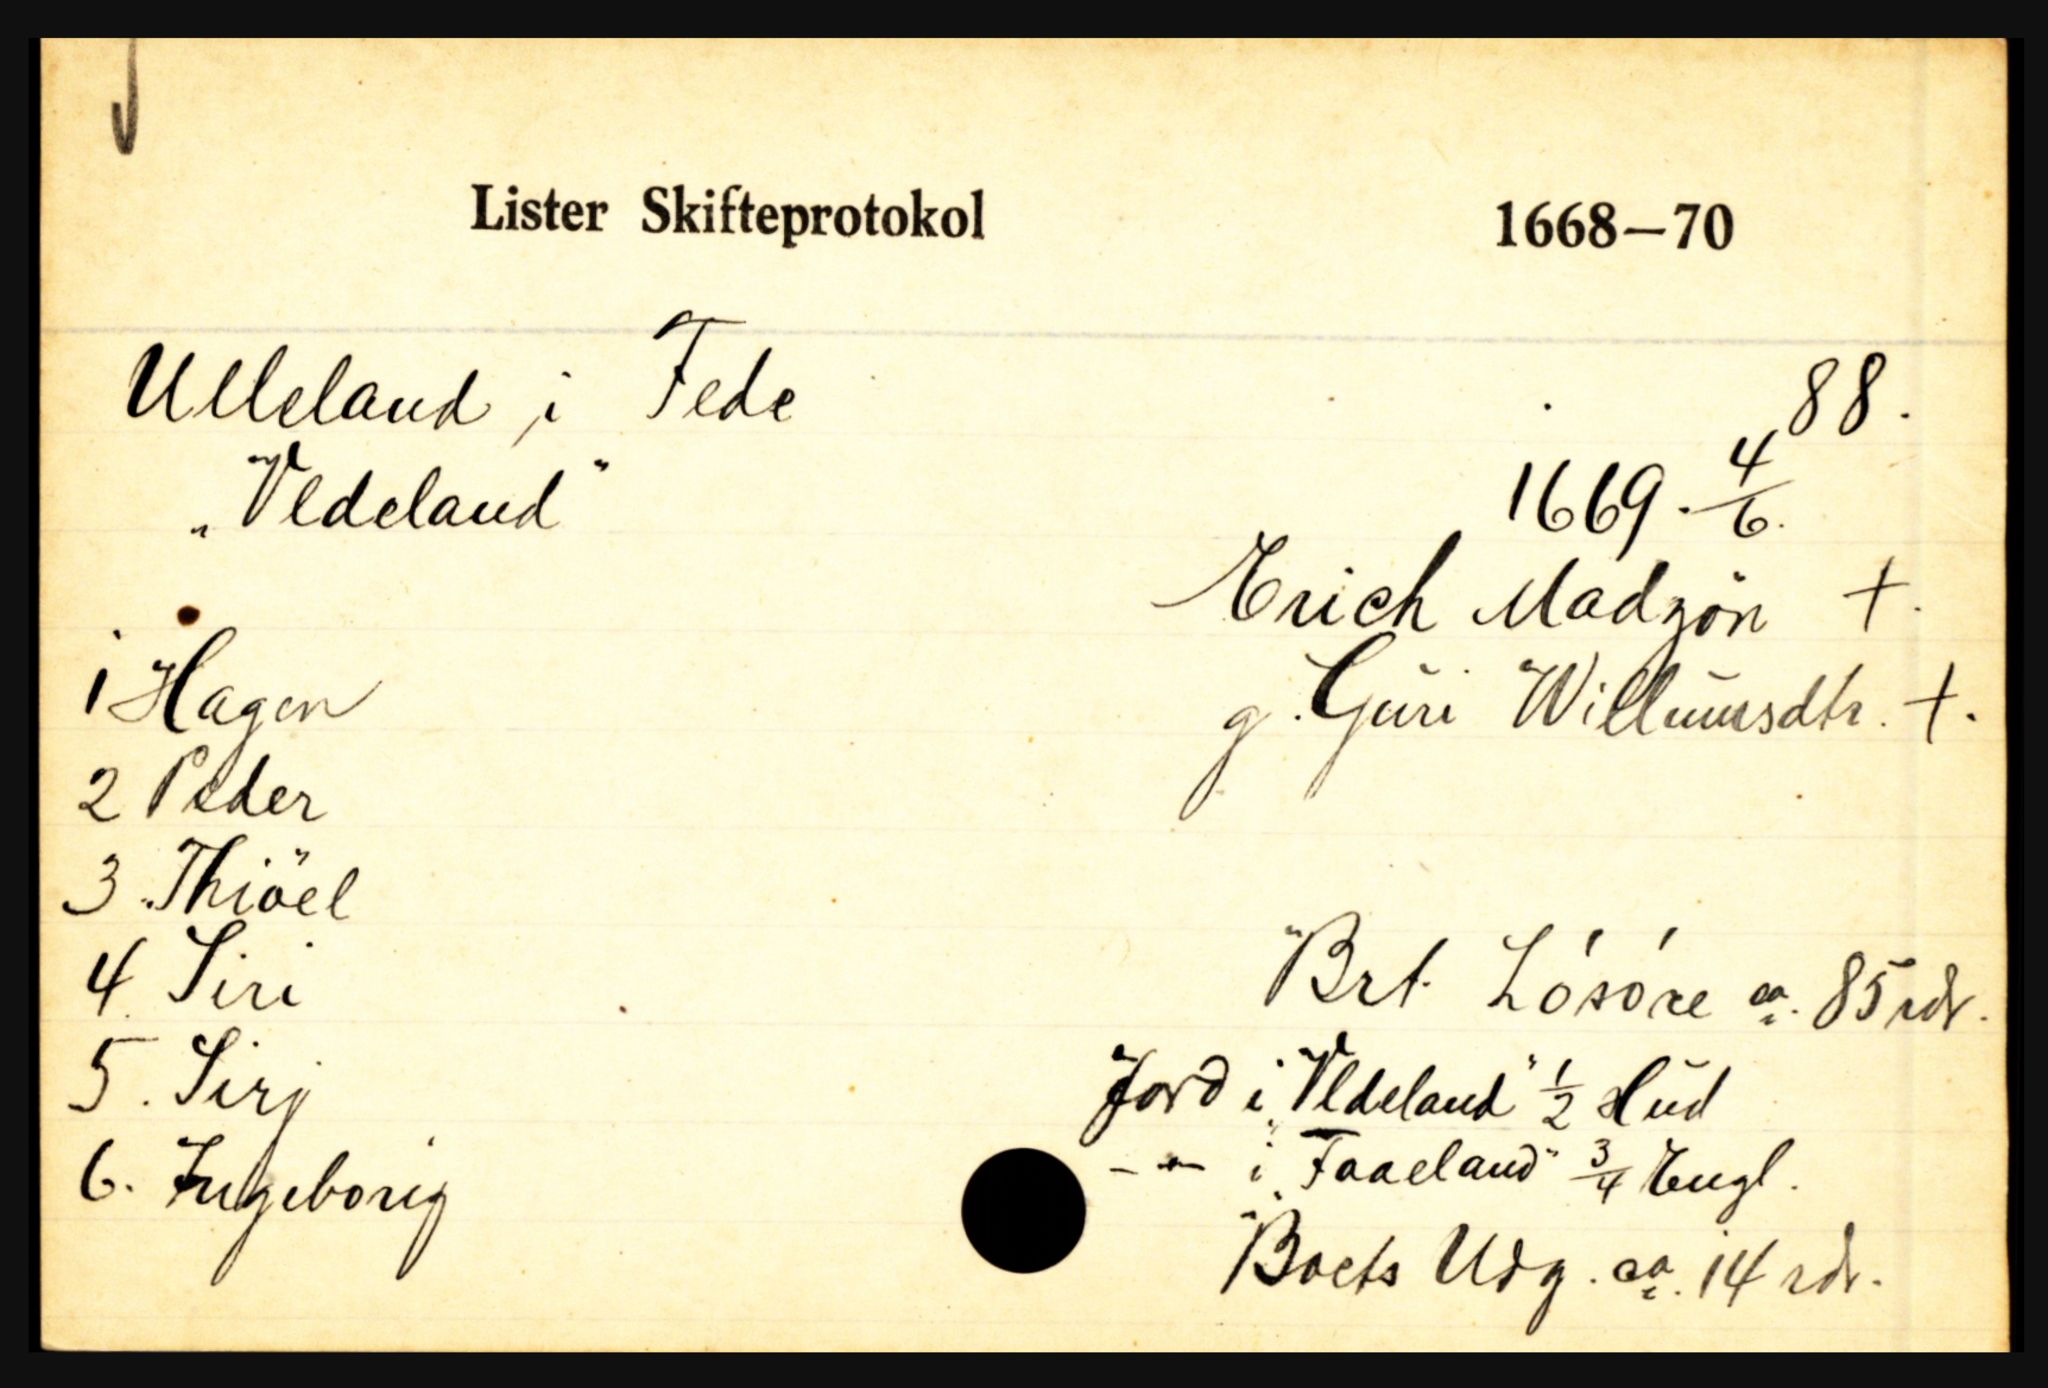 Lister Skifteprotokol 1668—70
Ulleland i Fede 88.
„Vldeland" 1669. 4/6.
Erich Madzön +.
1 Hagen g. Guri Willumsdtr. +.
2 Peder
3. Thiöel
4. Siri Brt. Lösöre ca. 85 rdr.
5. Sirj Jord i „Vldeland" 1/2 Hud
6. Ingeborig – " – i „Faaeland" 3/4 Engl.
Boets Udg. ca. 14 rdr.